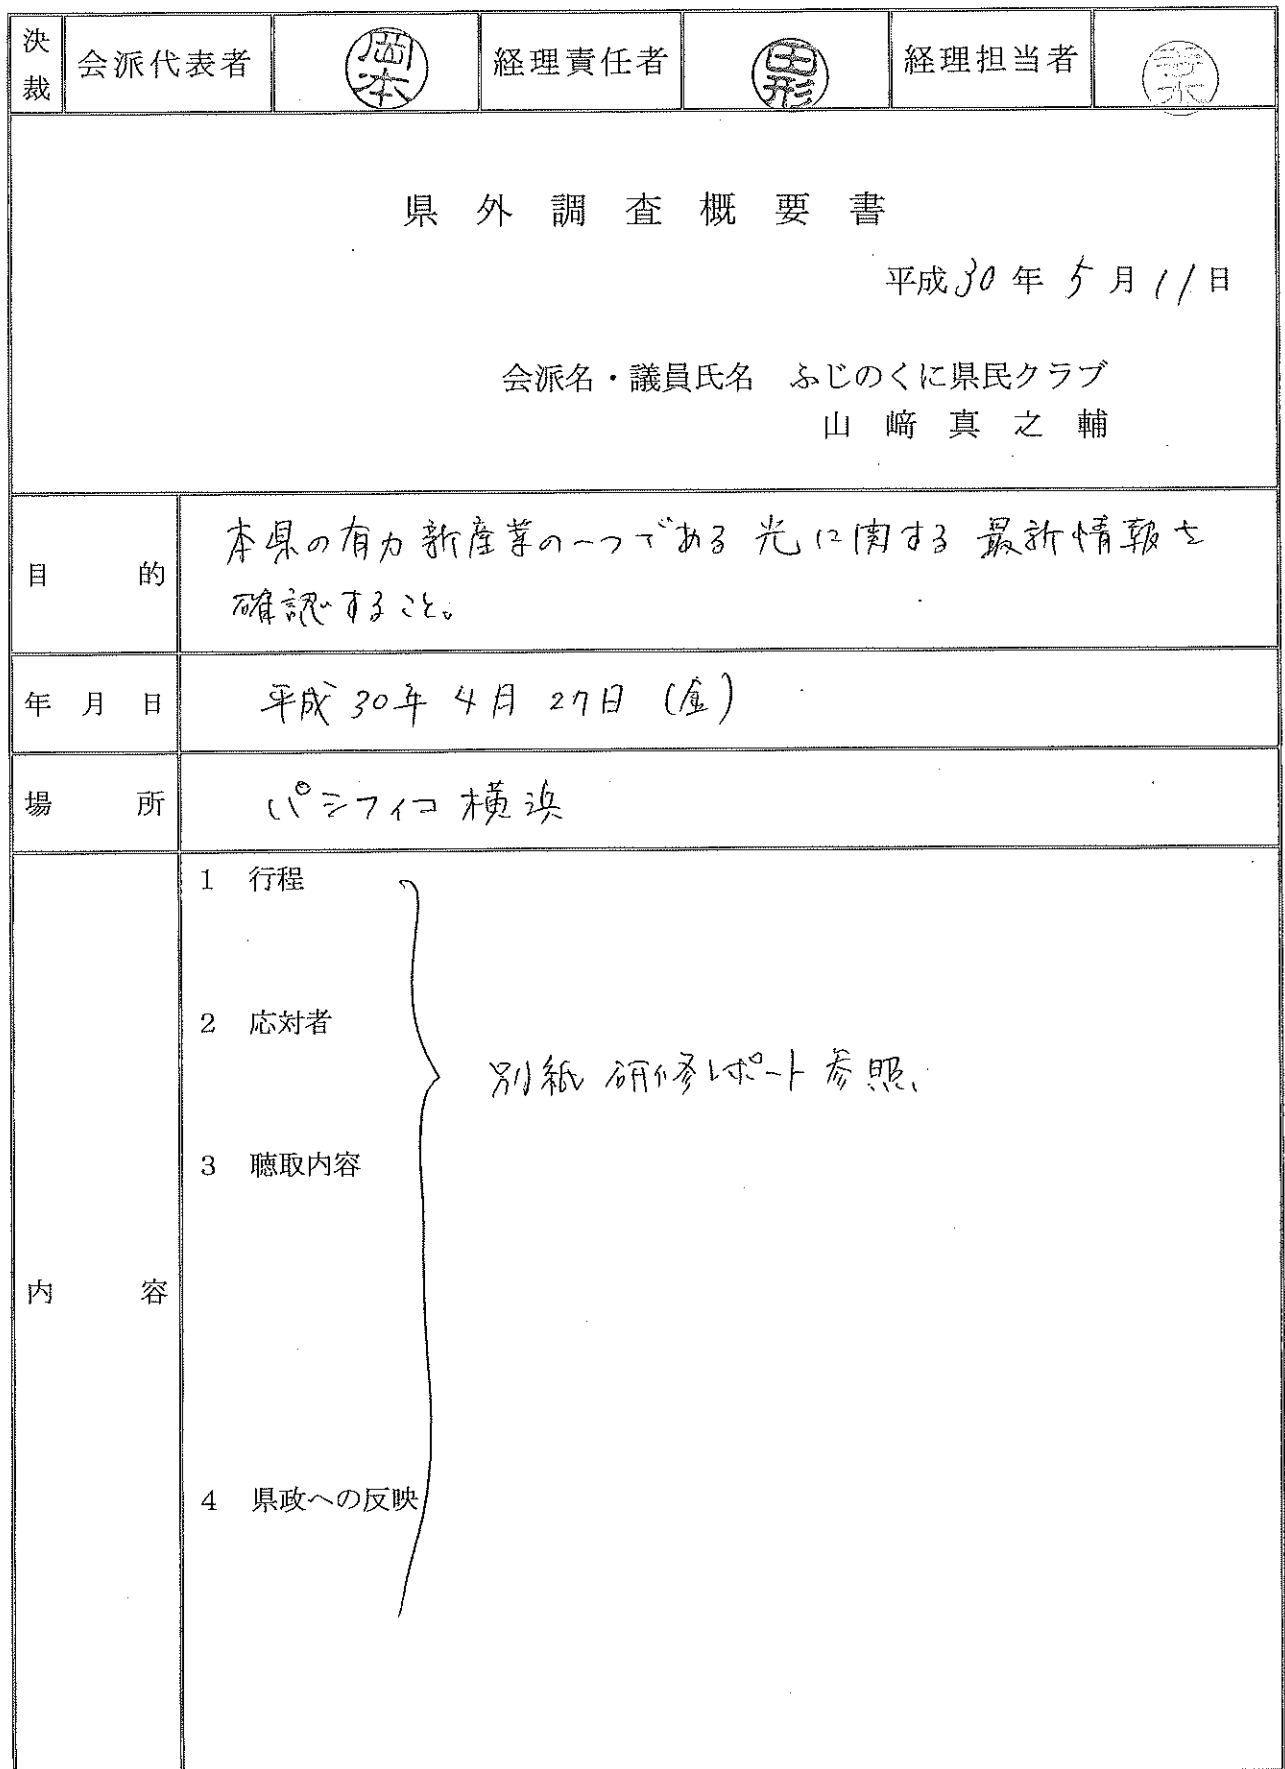 決裁 会派代表者 岡本 経理責任者 田形 経理担当者
県外調査概要書
平成30年5月11日
会派名・議員氏名 ふじのくに県民クラブ
山﨑真之輔
目的 本県の有力新産業の一つである光に関する最新情報を
確認すること。
年月日 平成30年4月27日(金)
場所 パシフィコ横浜
内容
1 行程
2 応対者
別紙 研修レポート参照、
3 聴取内容
4 県政への反映